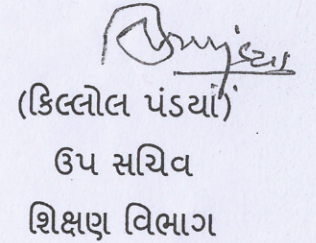 (કિલ્લોલ પંડયાં)
ઉપ સચિવ
શિક્ષણ વિભાગ